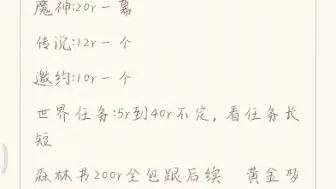 魔神:20r一幕
传说:12r一个
邀约:10r一个
世界任务:5r到40r不定，看任务长
短
森林书200r全包跟后续 黄金梦